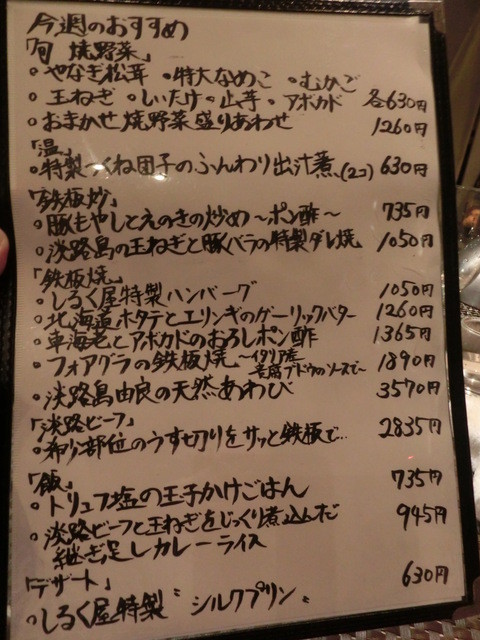 今週のおすすめ
「旬 焼野菜」
・やなぎ松茸 ・特大なめこ ・むかご
・玉ねぎ ・しいたけ ・山芋 ・アボカド 各630円
・おまかせ焼野菜盛りあわせ 1260円
「温」
・特製つくね団子のふんわり出汁煮(2コ) 630円
「鉄板炒」
・豚もやしとえのきの炒め〜ポン酢〜 735円
・淡路島の玉ねぎと豚バラの特製ダレ焼 1050円
「鉄板焼」
・しるく屋特製ハンバーグ 1050円
・北海道ホタテとエリンギのガーリックバター 1260円
・車海老とアボカドのおろしポン酢 1365円
・フォアグラの鉄板焼〜イタリア産 1890円
ブドウのソースで〜
・淡路島由良の天然あわび 3570円
「淡路ビーフ」
・希少部位のうす切りをサッと鉄板で… 2835円
「飯」
・トリュフ塩の玉子かけごはん 735円
・淡路ビーフと玉ねぎをじっくり煮込んだ 945円
継ぎ足しカレーライス
「デザート」
・しるく屋特製 〝シルクプリン〟 630円